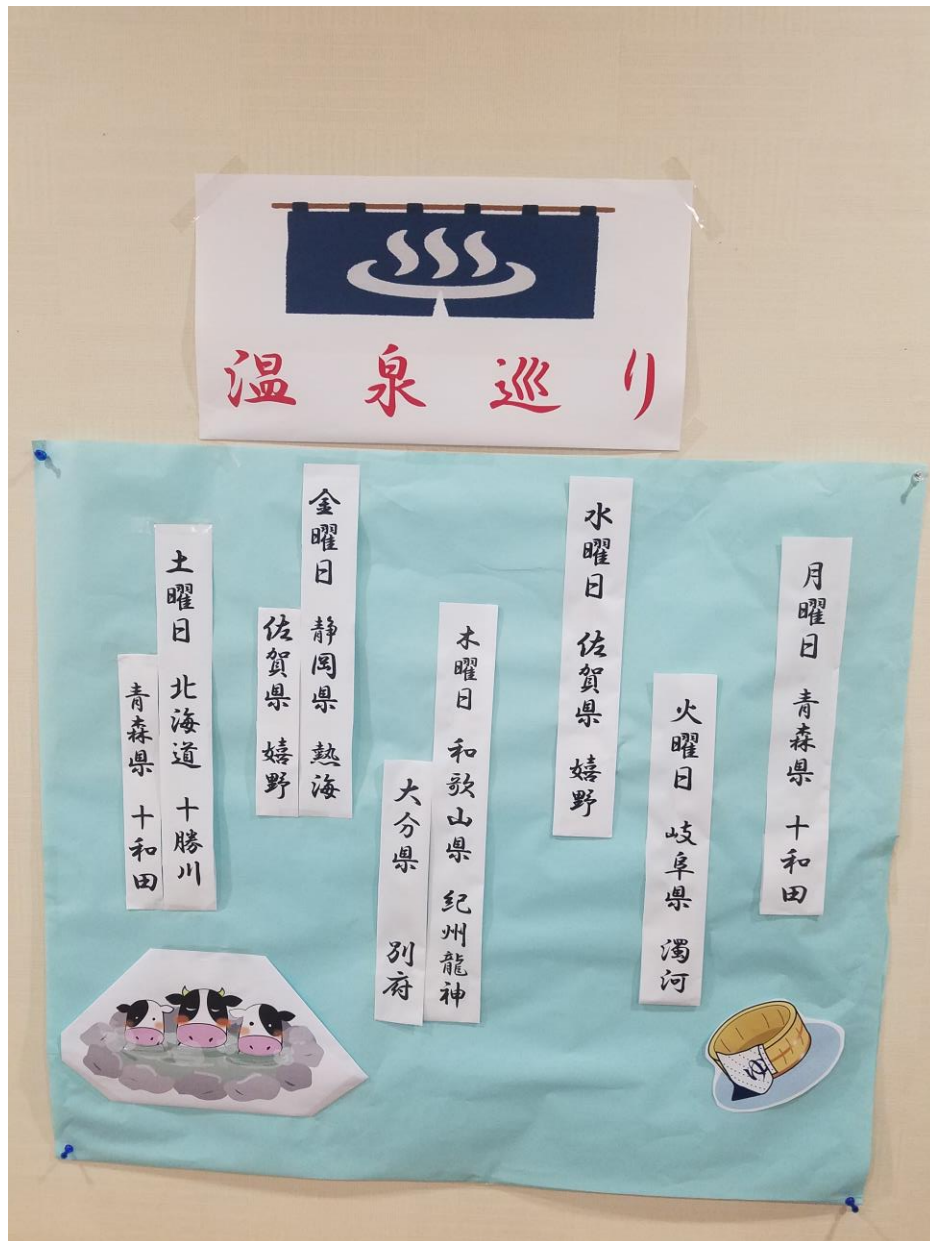 温泉巡り
月曜日 青森県 十和田
火曜日 岐阜県 濁河
水曜日 佐賀県 嬉野
木曜日 和歌山県 紀州龍神
大分県 別府
金曜日 静岡県 熱海
佐賀県 嬉野
土曜日 北海道 十勝川
青森県 十和田